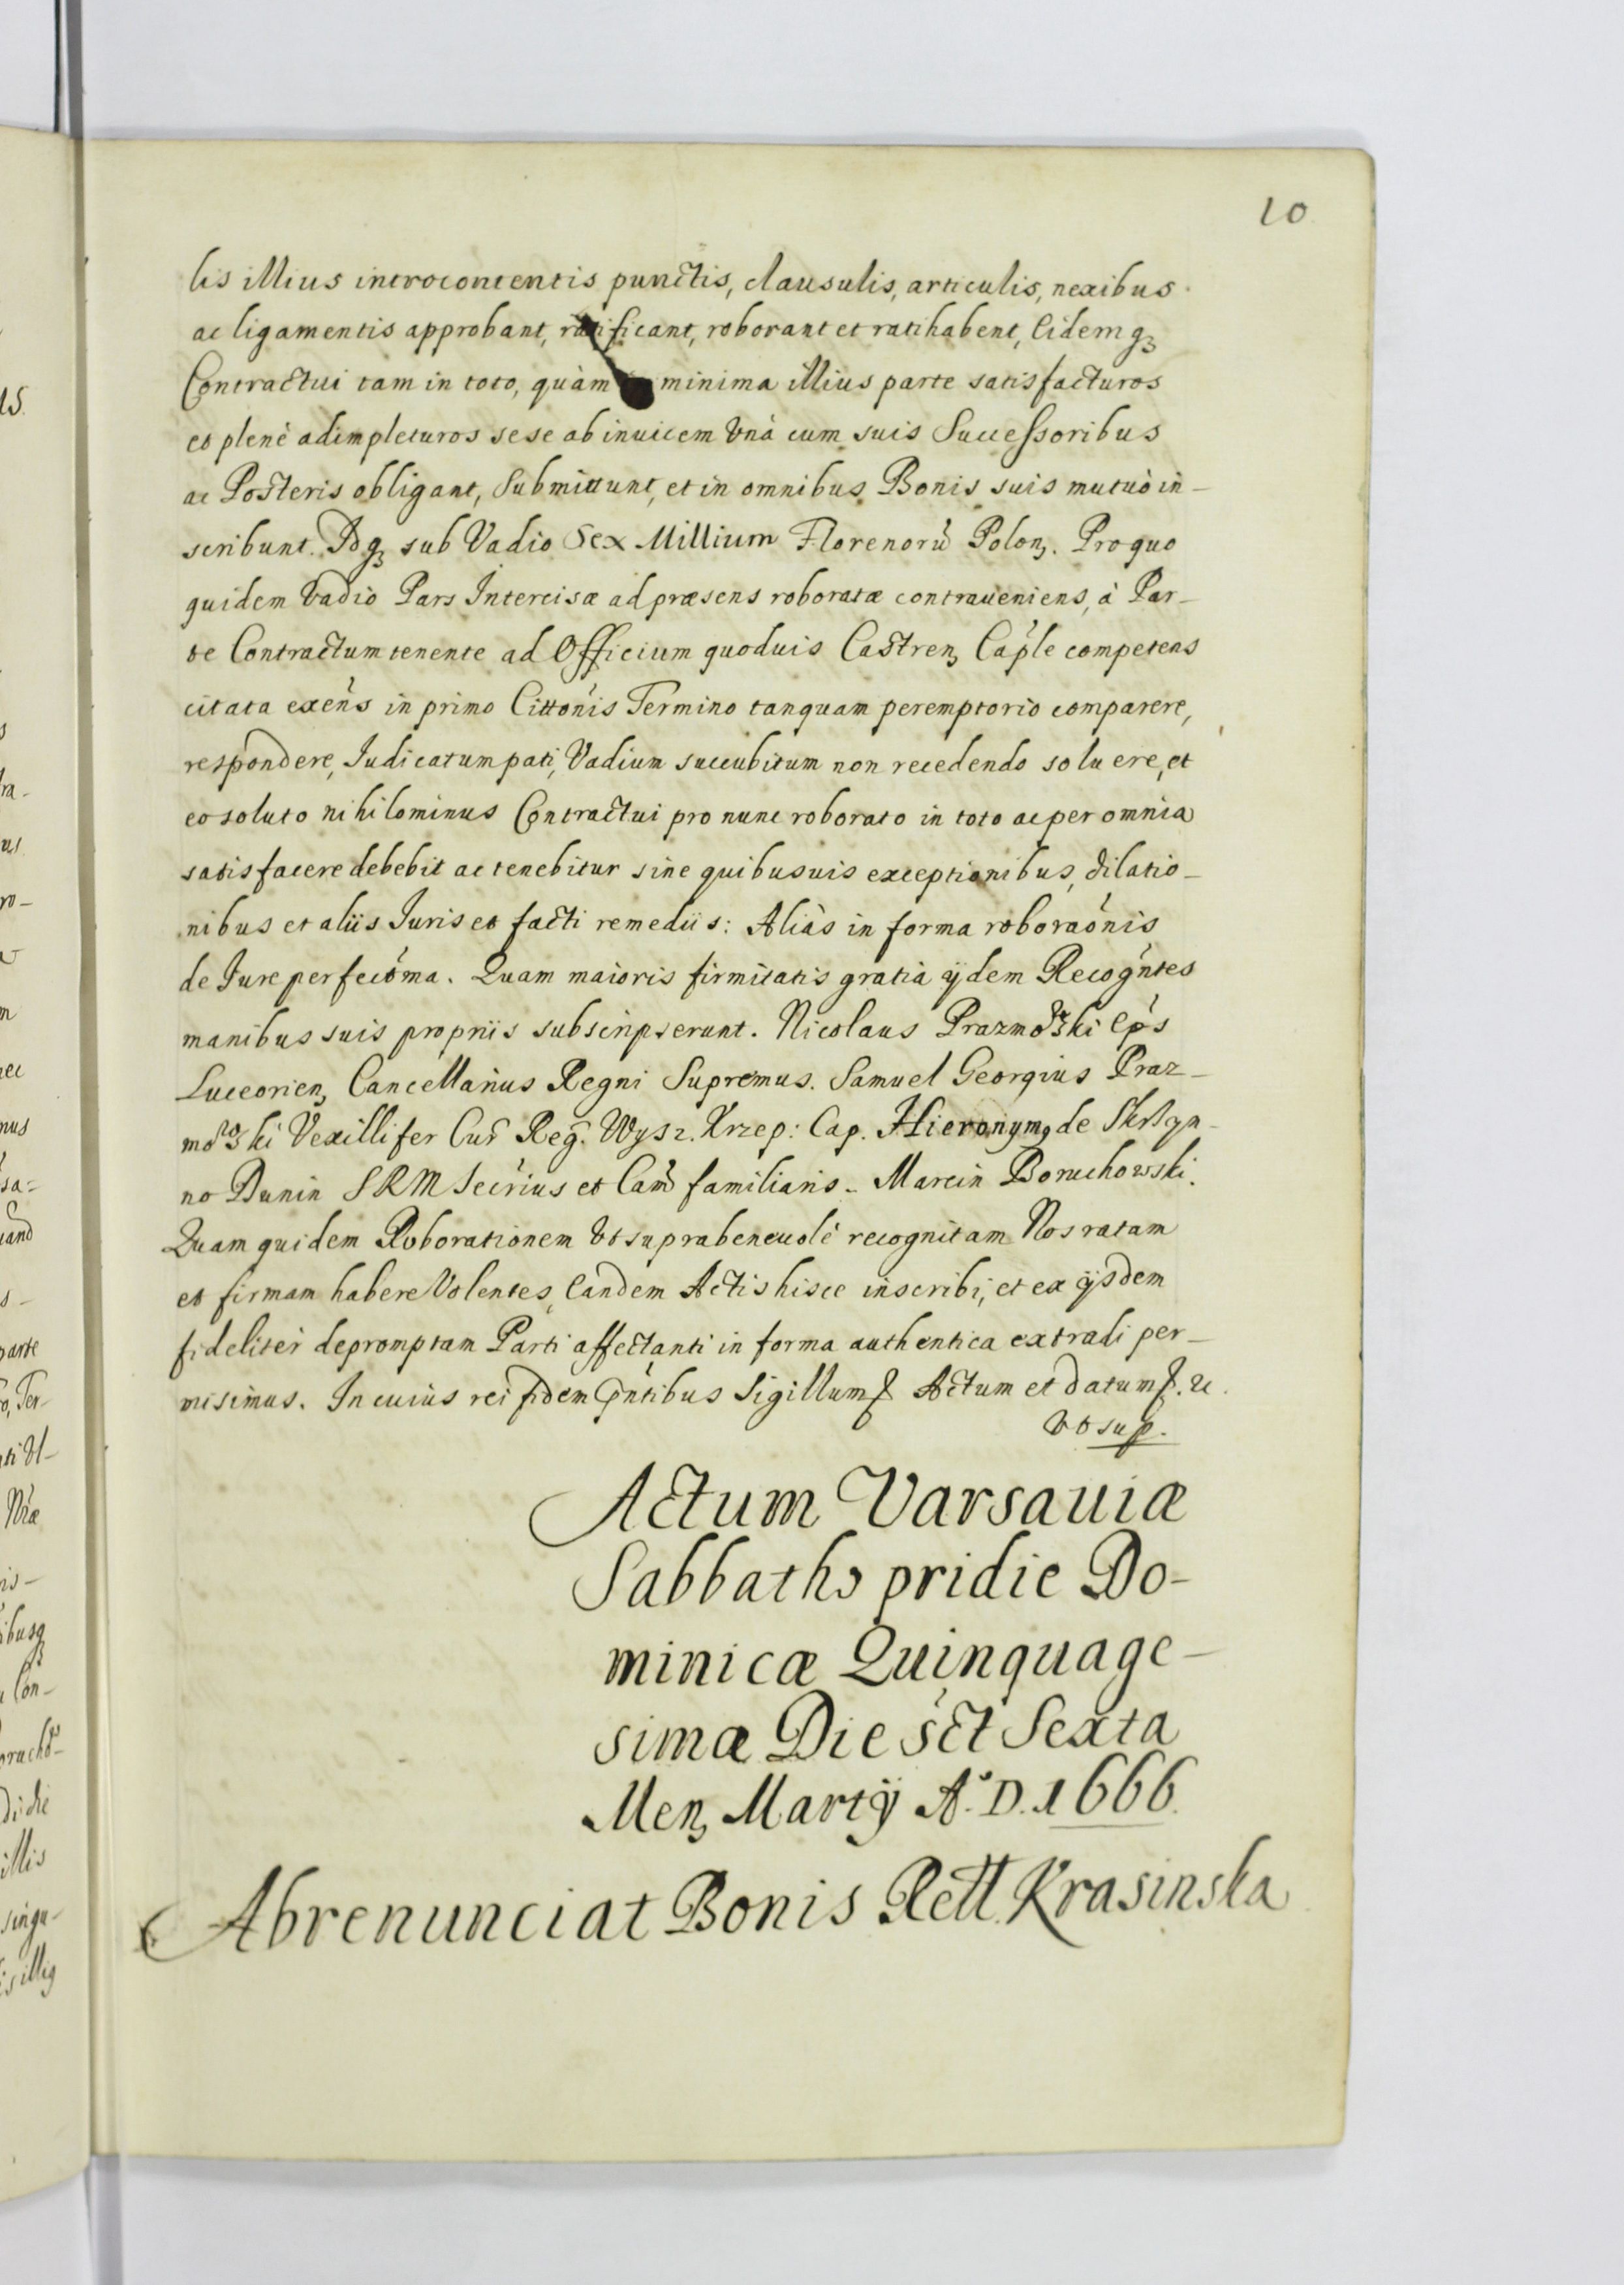 10
lis illius introcontentis punctis, clausulis, articulis, nexibus
ac ligamentis approbant, ratificant, roborant et ratihabent, Eidemqȝ
Contractui tam in toto, quàm minima illius parte satisfacturos
et plenè adimpleturos sese ab inuicem Vnà cum suis Successoribus
ac Posteris obligant, Submittunt, et in omnibus Bonis suis mutuò in-
scribunt. Idqȝ sub Vadio Sex Millium Florenorũ Polonȝ. Pro quo
quidem Vadio Pars Intercisæ ad præsens roboratæ contraueniens, à Par-
te Contractum tenente ad Officium quoduis Castrenȝ Caple competens
citata exens in primo Cittonis Termino tanquam peremptorio comparere,
respondere, Iudicatum pati, Vadium succubitum non recedendo soluere, et
eo soluto nihilominus Contractui pro nunc roborato in toto ac per omnia
satisfacere debebit ac tenebitur sine quibusuis exceptionibus, dilatio-
nibus et aliis Iuris et facti remediis: Aliàs in forma roboraonis
de Iure perfectma. Quam maioris firmitatis gratia ijdem Recogntes
manibus suis propriis subscripserunt. Nicolaus Prazmowski Eps
Luceorienȝ Cancellarius Regni Supremus. Samuel Georgius Praz-
mowski Vexillifer Cur Reg. Wysz. Krzep: Cap. Hieronymꝰ de Skrzyn-
no Dunin SRM Secrius et Cam familiaris - Marcin Boruchowski.
Quam quidem Roborationem Vt supra beneuolè recognitam Nos ratam
et firmam habere Volentes, Eandem Actis hisce inscribi, et ex ijsdem
fideliter depromptam Parti affectanti in forma authentica extradi per-
misimus. In cuius rei fidem Pntibus Sigillum ꝭ Actum et datum ꝭ. 2c.
Vt sup.
Actum Varsauiæ
Sabbatho pridie Do-
minicæ Quinquage-
simæ Die sct Sexta
Menȝ Martij A.º D. 1666.
Abrenunciat Bonis Rell. Krasinska